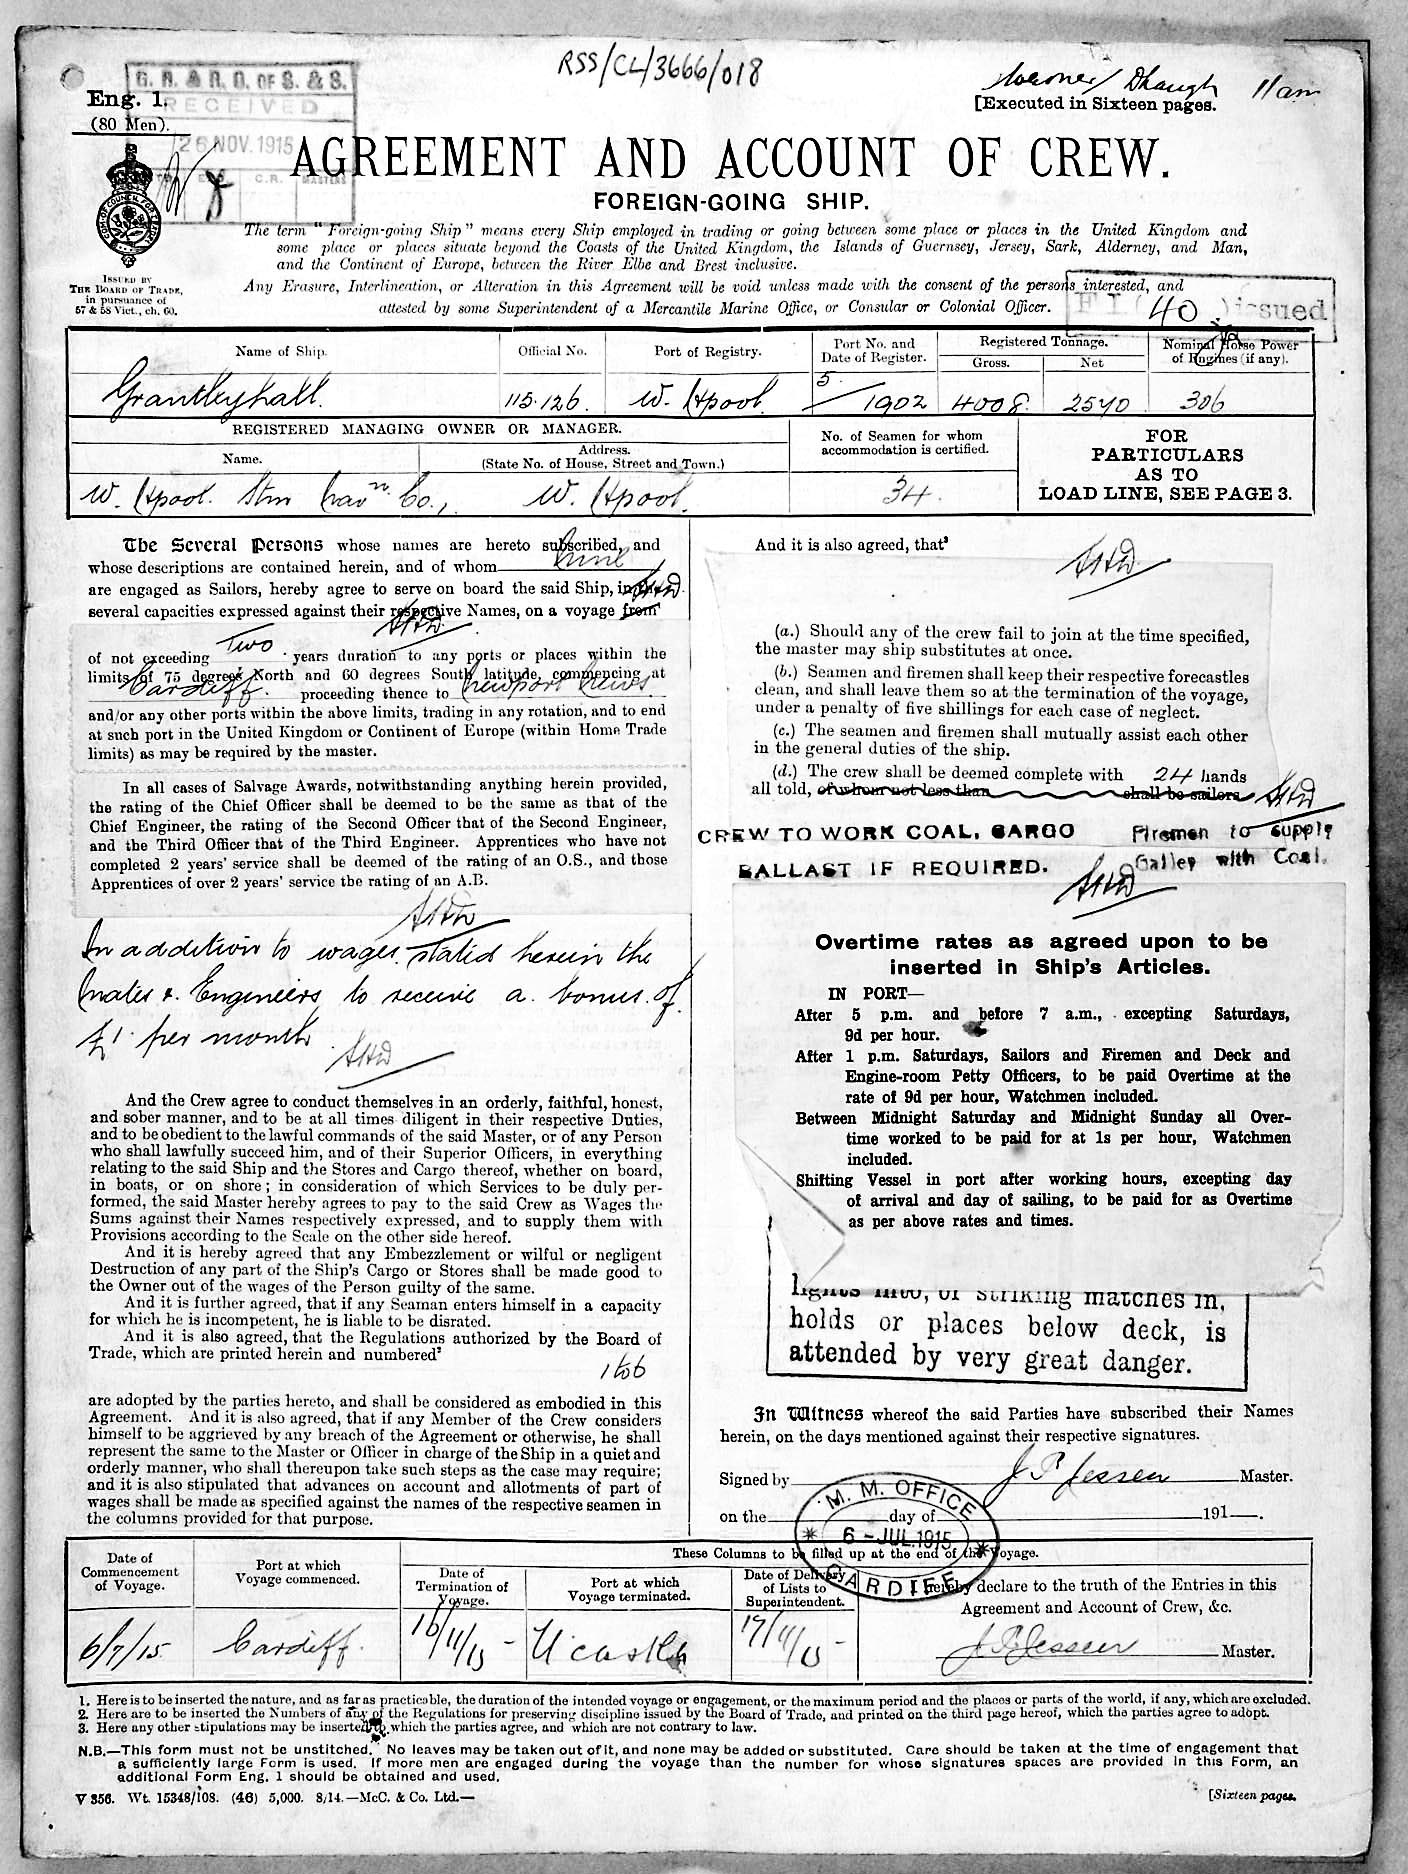 RSS/CL/3666/018
G. R. & R. G. OF S. & S.
RECEIVED
26 NOV. 1915
C.R. MASTERS
11 am
Eng. 1.
(80 Men).
[Executed in Sixteen pages.
AGREEMENT AND ACCOUNT OF CREW.
FOREIGN-GOING SHIP.
ISSUED BY
THE BOARD OF TRADE,
in pursuance of
57 & 58 Vict., ch. 60.
The term "Foreign-going Ship" means every Ship employed in trading or going between some place or places in the United Kingdom and
some place or places situate beyond the Coasts of the United Kingdom, the Islands of Guernsey, Jersey, Sark, Alderney, and Man,
and the Continent of Europe, between the River Elbe and Brest inclusive.
Any Erasure, Interlineation, or Alteration in this Agreement will be void unless made with the consent of the persons interested, and
attested by some Superintendent of a Mercantile Marine Office, or Consular or Colonial Officer.
40 issued
Name of Ship.
Official No.
Port of Registry.
Port No. and
Date of Register.
Registered Tonnage.
Gross.
Net
Nominal Horse Power
of Engines (if any).
Grantleyhall.
115.126.
W. Hpool.
5/1902
4008.
2570
306
REGISTERED MANAGING OWNER OR MANAGER.
Name.
Address.
(State No. of House, Street and Town.)
No. of Seamen for whom
accommodation is certified.
FOR
PARTICULARS
AS TO
LOAD LINE, SEE PAGE 3.
W. Hpool. Stm Navn. Co.,
W. Hpool.
34.
The Several Persons whose names are hereto subscribed, and
whose descriptions are contained herein, and of whom nine
are engaged as Sailors, hereby agree to serve on board the said Ship, in the
several capacities expressed against their respective Names, on a voyage from
of not exceeding Two years duration to any ports or places within the
limits of 75 degrees North and 60 degrees South latitude, commencing at
Cardiff. proceeding thence to Newport News.
and/or any other ports within the above limits, trading in any rotation, and to end
at such port in the United Kingdom or Continent of Europe (within Home Trade
limits) as may be required by the master.
In all cases of Salvage Awards, notwithstanding anything herein provided,
the rating of the Chief Officer shall be deemed to be the same as that of the
Chief Engineer, the rating of the Second Officer that of the Second Engineer,
and the Third Officer that of the Third Engineer. Apprentices who have not
completed 2 years' service shall be deemed of the rating of an O.S., and those
Apprentices of over 2 years' service the rating of an A.B.
In addition to wages stated herein the
Mates & Engineers to receive a bonus of
£1 per month
And the Crew agree to conduct themselves in an orderly, faithful, honest,
and sober manner, and to be at all times diligent in their respective Duties,
and to be obedient to the lawful commands of the said Master, or of any Person
who shall lawfully succeed him, and of their Superior Officers, in everything
relating to the said Ship and the Stores and Cargo thereof, whether on board,
in boats, or on shore; in consideration of which Services to be duly per-
formed, the said Master hereby agrees to pay to the said Crew as Wages the
Sums against their Names respectively expressed, and to supply them with
Provisions according to the Scale on the other side hereof.
And it is hereby agreed that any Embezzlement or wilful or negligent
Destruction of any part of the Ship's Cargo or Stores shall be made good to
the Owner out of the wages of the Person guilty of the same.
And it is further agreed, that if any Seaman enters himself in a capacity
for which he is incompetent, he is liable to be disrated.
And it is also agreed, that the Regulations authorized by the Board of
Trade, which are printed herein and numbered²
1 to 6
are adopted by the parties hereto, and shall be considered as embodied in this
Agreement. And it is also agreed, that if any Member of the Crew considers
himself to be aggrieved by any breach of the Agreement or otherwise, he shall
represent the same to the Master or Officer in charge of the Ship in a quiet and
orderly manner, who shall thereupon take such steps as the case may require;
and it is also stipulated that advances on account and allotments of part of
wages shall be made as specified against the names of the respective seamen in
the columns provided for that purpose.
And it is also agreed, that³
(a.) Should any of the crew fail to join at the time specified,
the master may ship substitutes at once.
(b.) Seamen and firemen shall keep their respective forecastles
clean, and shall leave them so at the termination of the voyage,
under a penalty of five shillings for each case of neglect.
(c.) The seamen and firemen shall mutually assist each other
in the general duties of the ship.
(d.) The crew shall be deemed complete with 24 hands
all told, of whom not less than shall be sailors
CREW TO WORK COAL, CARGO
BALLAST IF REQUIRED.
Firemen to supply
Galley with Coal.
Overtime rates as agreed upon to be
inserted in Ship's Articles.
IN PORT—
After 5 p.m. and before 7 a.m., excepting Saturdays,
9d per hour.
After 1 p.m. Saturdays, Sailors and Firemen and Deck and
Engine-room Petty Officers, to be paid Overtime at the
rate of 9d per hour, Watchmen included.
Between Midnight Saturday and Midnight Sunday all Over-
time worked to be paid for at 1s per hour, Watchmen
included.
Shifting Vessel in port after working hours, excepting day
of arrival and day of sailing, to be paid for as Overtime
as per above rates and times.
lights into, or striking matches in,
holds or places below deck, is
attended by very great danger.
In Witness whereof the said Parties have subscribed their Names
herein, on the days mentioned against their respective signatures.
Signed by J P Jessen Master.
on the day of 191 .
M. M. OFFICE
6 - JUL. 1915
CARDIFF
Date of
Commencement
of Voyage.
Port at which
Voyage commenced.
These Columns to be filled up at the end of the Voyage.
Date of
Termination of
Voyage.
Port at which
Voyage terminated.
Date of Delivery
of Lists to
Superintendent.
I hereby declare to the truth of the Entries in this
Agreement and Account of Crew, &c.
6/7/15
Cardiff.
16/11/15
N'castle
17/11/15
J P Jessen Master.
1. Here is to be inserted the nature, and as far as practicable, the duration of the intended voyage or engagement, or the maximum period and the places or parts of the world, if any, which are excluded.
2. Here are to be inserted the Numbers of any of the Regulations for preserving discipline issued by the Board of Trade, and printed on the third page hereof, which the parties agree to adopt.
3. Here any other stipulations may be inserted to which the parties agree, and which are not contrary to law.
N.B.—This form must not be unstitched. No leaves may be taken out of it, and none may be added or substituted. Care should be taken at the time of engagement that
a sufficiently large Form is used. If more men are engaged during the voyage than the number for whose signatures spaces are provided in this Form, an
additional Form Eng. 1 should be obtained and used.
V 356. Wt. 15348/108. (46) 5,000. 8/14.—McC. & Co. Ltd.—
[Sixteen pages.